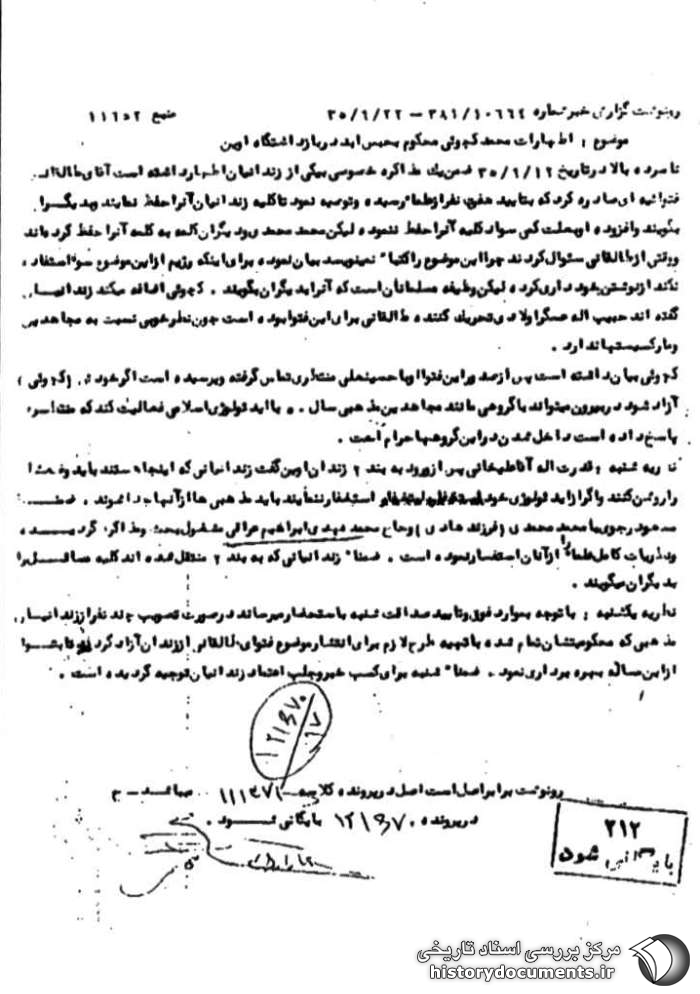 رونوشت گزارش خبر شماره ۳۸۱/۱۰۶۶۴ - ۳۵/۶/۲۲ منبع ۱۱۶۵۲
موضوع : اظهارات محمد کچوئی محکوم بحبس ابد در بازداشتگاه اوین
نامبرده بالا در تاریخ ۳۵/۶/۱۲ ضمن یک مذاکره خصوصی بیکی از زندانیان اظهار داشته است آقای طالقانی
فتوائیه ای صادر کرد که بتایید هفت نفر از علما رسیده و توصیه نمود تا کلیه زندانیان آنرا حفظ نمایند و بدیگران
بگویند وافزوده اوبعلت کمی سواد کلیه آنرا حفظ ننموده لیکن محمد محمدی و دیگران کلمه به کلمه آنرا حفظ کرده اند
ووقتی از طالقانی سئوال کردند چرا این موضوع را کتبا" نمینویسد بیان نموده برای اینکه رژیم از این موضوع سوء استفاده
نکند از نوشتن خودداری کرده لیکن وظیفه مسلمانان است که آنرا بدیگران بگویند . کچوئی اضافه میکند زندانیان
گفته اند حبیب اله عسگراولادی تحریک کننده طالقانی برای این فتوا بوده است چون نظر خوبی نسبت به مجاهدین
ومارکسیستها ندارد .
کچوئی بیان داشته است پس از صدور این فتوا او با حسینعلی منتظری تماس گرفته وپرسیده است اگر خودش (کچوئی)
آزاد شود در بیرون میتواند با گروهی مانند مجاهدین مذهبی سال . ه با ایدئولوژی اسلامی فعالیت کند که منتظری
پاسخ داده است داخل شدن در این گروهها حرام است .
نظریه شنبه : قدرت اله آقاعلیخانی پس از ورود به بند ۲ زندان اوین گفت زندانیانی که اینجا هستند باید وضع خود را
را روشن کنند واگر از ایدئولوژی خود استغفار ننمایند باید مذهبی ها از آنها جدا شوند . ضمنا"
مسعود رجوی با محمد محمدی (فرزند هادی) وحاج محمد مهدی ابراهیم عراقی مشغول بحث ومذاکره گردیده
ونظریات کامل علما را از آنان استفسار نموده است . ضمنا" زندانیانی که به بند ۲ منتقل شده اند کلیه مسائل را
بدیگران میگویند .
نظریه یکشنبه : با توجه بموارد فوق وتایید صداقت شنبه باستحضار میرساند در صورت تصویب چند نفر از زندانیان
مذهبی که محکومیتشان تمام شده با تهیه طرح لازم برای انتشار موضوع فتوای طالقانی از زندان آزاد گردند تا بتوان
از این مساله بهره برداری نمود . ضمنا" شنبه برای کسب خبر وجلب اعتماد زندانیان توجیه گردیده است .
۱۲۱۶۷۰
رونوشت برابر اصل است اصل در پرونده کلاسه ۱۱۱۳۷۱ میباشد - م
در پرونده ۱۲۱۶۷۰ بایگانی شود .
۲۱۲
بایگانی شود
مرکز بررسی اسناد تاریخی
historydocuments.ir